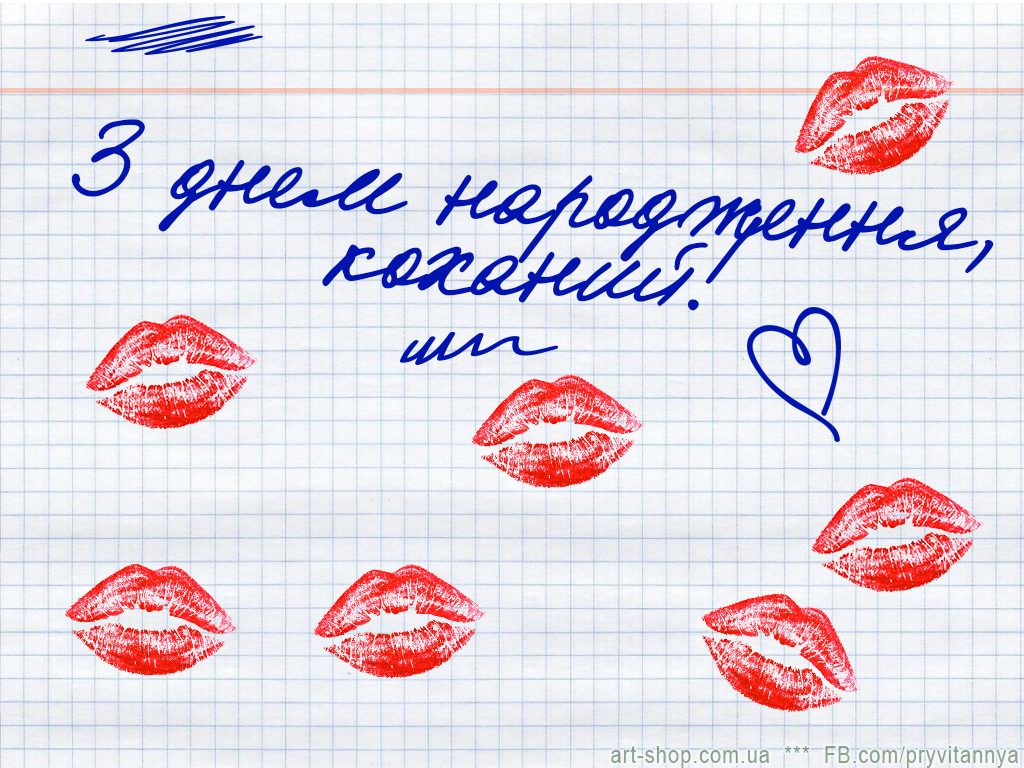 З днем народження,
коханий!
art-shop.com.ua *** FB.com/pryvitannya